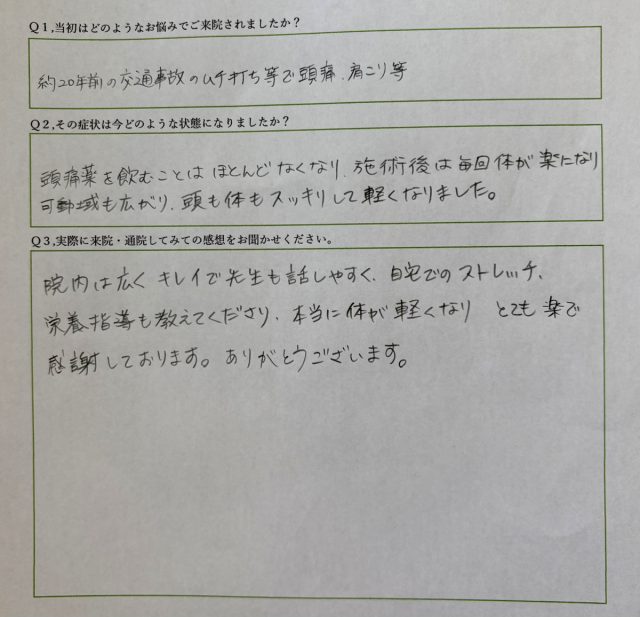 Q1,当初はどのようなお悩みでご来院されましたか？
約20年前の交通事故のムチ打ち等で頭痛、肩こり等
Q2,その症状は今どのような状態になりましたか？
頭痛薬を飲むことはほとんどなくなり、施術後は毎回体が楽になり
可動域も広がり、頭も体もスッキリして軽くなりました。
Q3,実際に来院・通院してみての感想をお聞かせください。
院内は広くキレイで先生も話しやすく、自宅でのストレッチ、
栄養指導も教えてくださり、本当に体が軽くなり とても楽で
感謝しております。ありがとうございます。